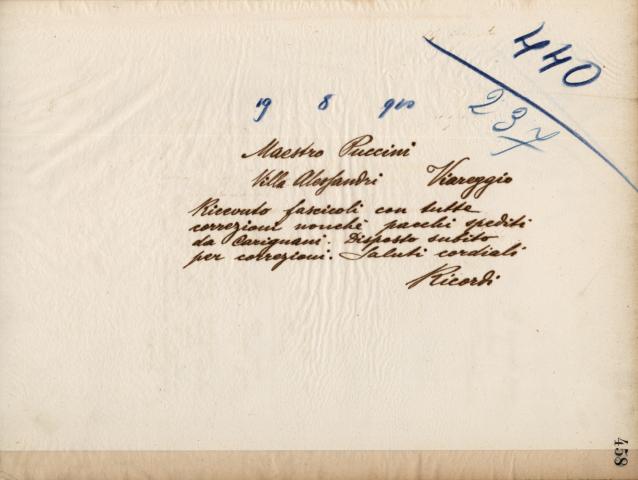 440
237
19 8 910
Maestro Puccini
Villa Alessandri Viareggio
Ricevuto fascicoli con tutte
correzioni nonchè pacchi spediti
da Carignani. Disposto subito
per correzioni. Saluti cordiali
Ricordi
458